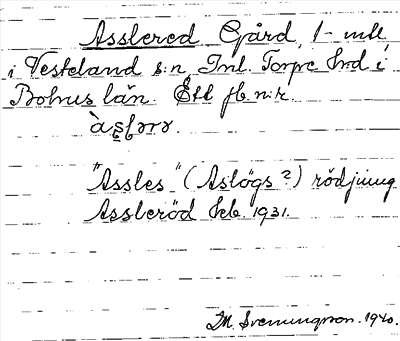 Asslered Gård, 1- mtl
i Vesteland s:n, Inl. Torpe Hrd i
Bohus län. Ett fb. n:r.
"Assles" (Aslögs?) rödjning
Assleröd Jrb. 1931.
M. Svenungsson. 1940.